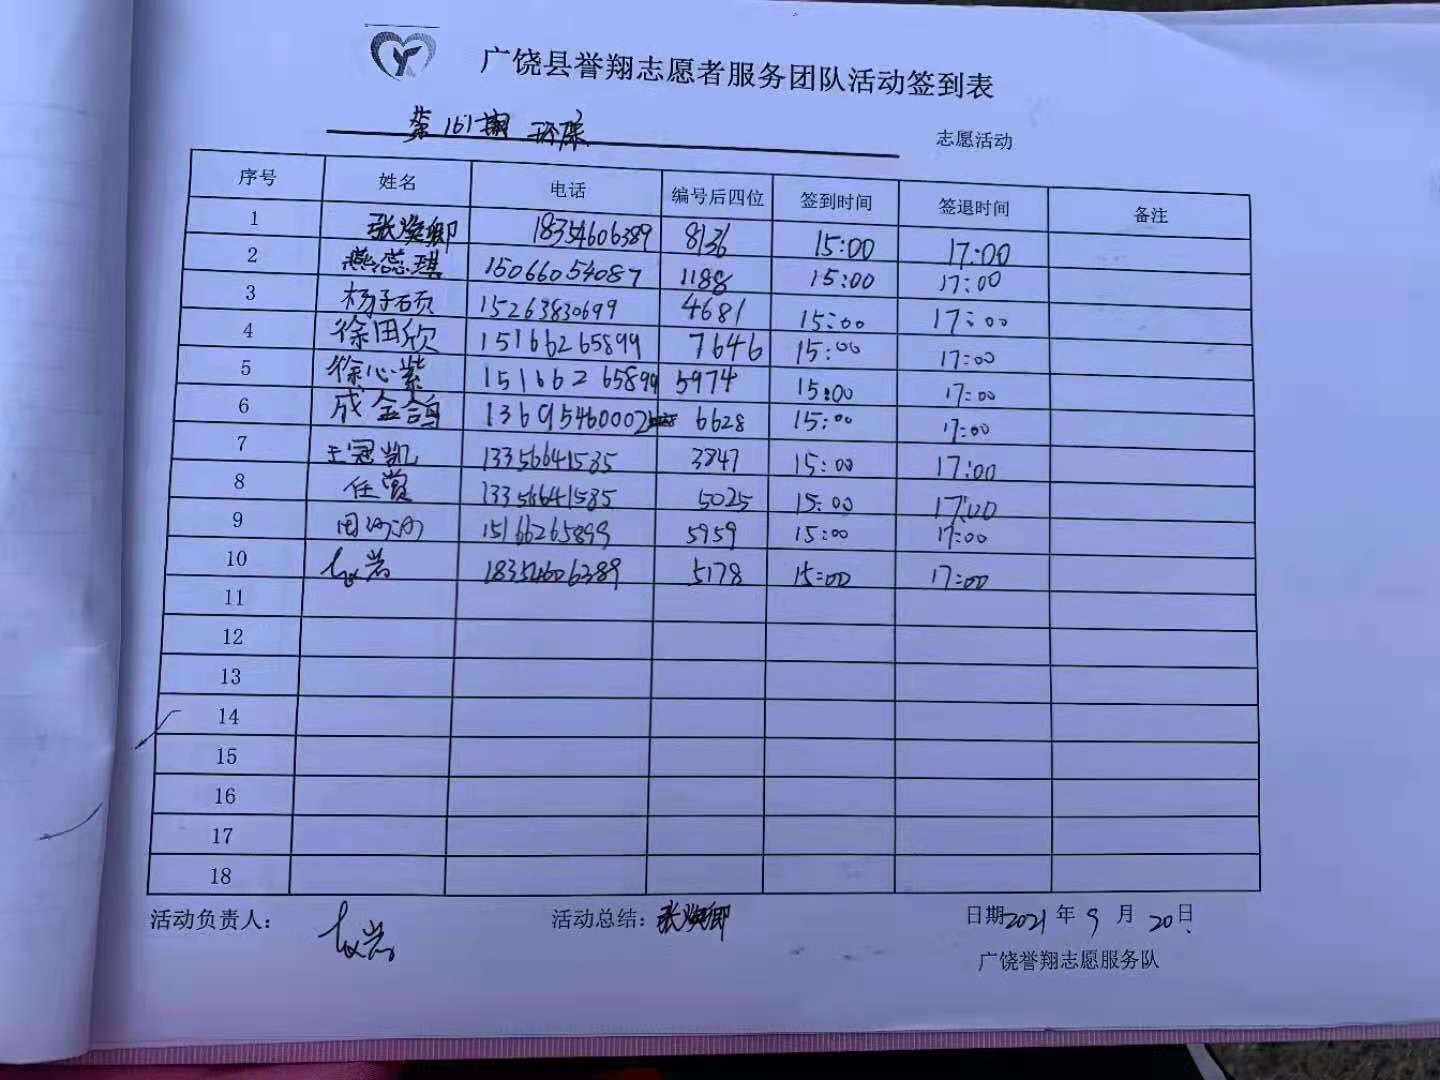 广饶县誉翔志愿者服务团队活动签到表
第161期 环保 志愿活动
序号 姓名 电话 编号后四位 签到时间 签退时间 备注
1 张焕卿 18354606389 8136 15:00 17:00
2 燕蕊琪 15066054087 1188 15:00 17:00
3 杨子硕 15263830699 4681 15:00 17:00
4 徐田欣 15166265899 7646 15:00 17:00
5 徐心紫 15166265899 5974 15:00 17:00
6 成金鸽 13695460002 6628 15:00 17:00
7 王冠凯 13356641585 3847 15:00 17:00
8 任 13356641585 5025 15:00 17:00
9 田 15166265899 5959 15:00 17:00
10 18354606389 5178 15:00 17:00
11
12
13
14
15
16
17
18
活动负责人: 活动总结:张焕卿 日期2021年9月20日
广饶誉翔志愿服务队